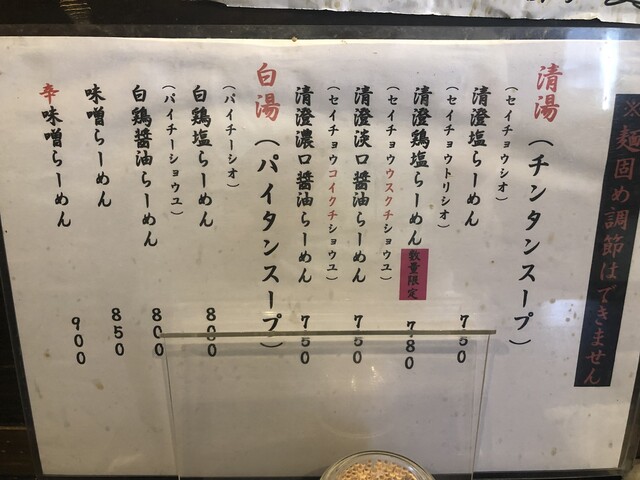 ※麺固め調節はできません
清湯（チンタンスープ）
（セイチョウシオ）
清澄塩らーめん 750
（セイチョウトリシオ）
清澄鶏塩らーめん 数量限定 780
（セイチョウウスクチショウユ）
清澄淡口醤油らーめん 750
（セイチョウコイクチショウユ）
清澄濃口醤油らーめん 750
白湯（パイタンスープ）
（パイチーシオ）
白鶏塩らーめん 800
（パイチーショウユ）
白鶏醤油らーめん 800
味噌らーめん 850
辛味噌らーめん 900